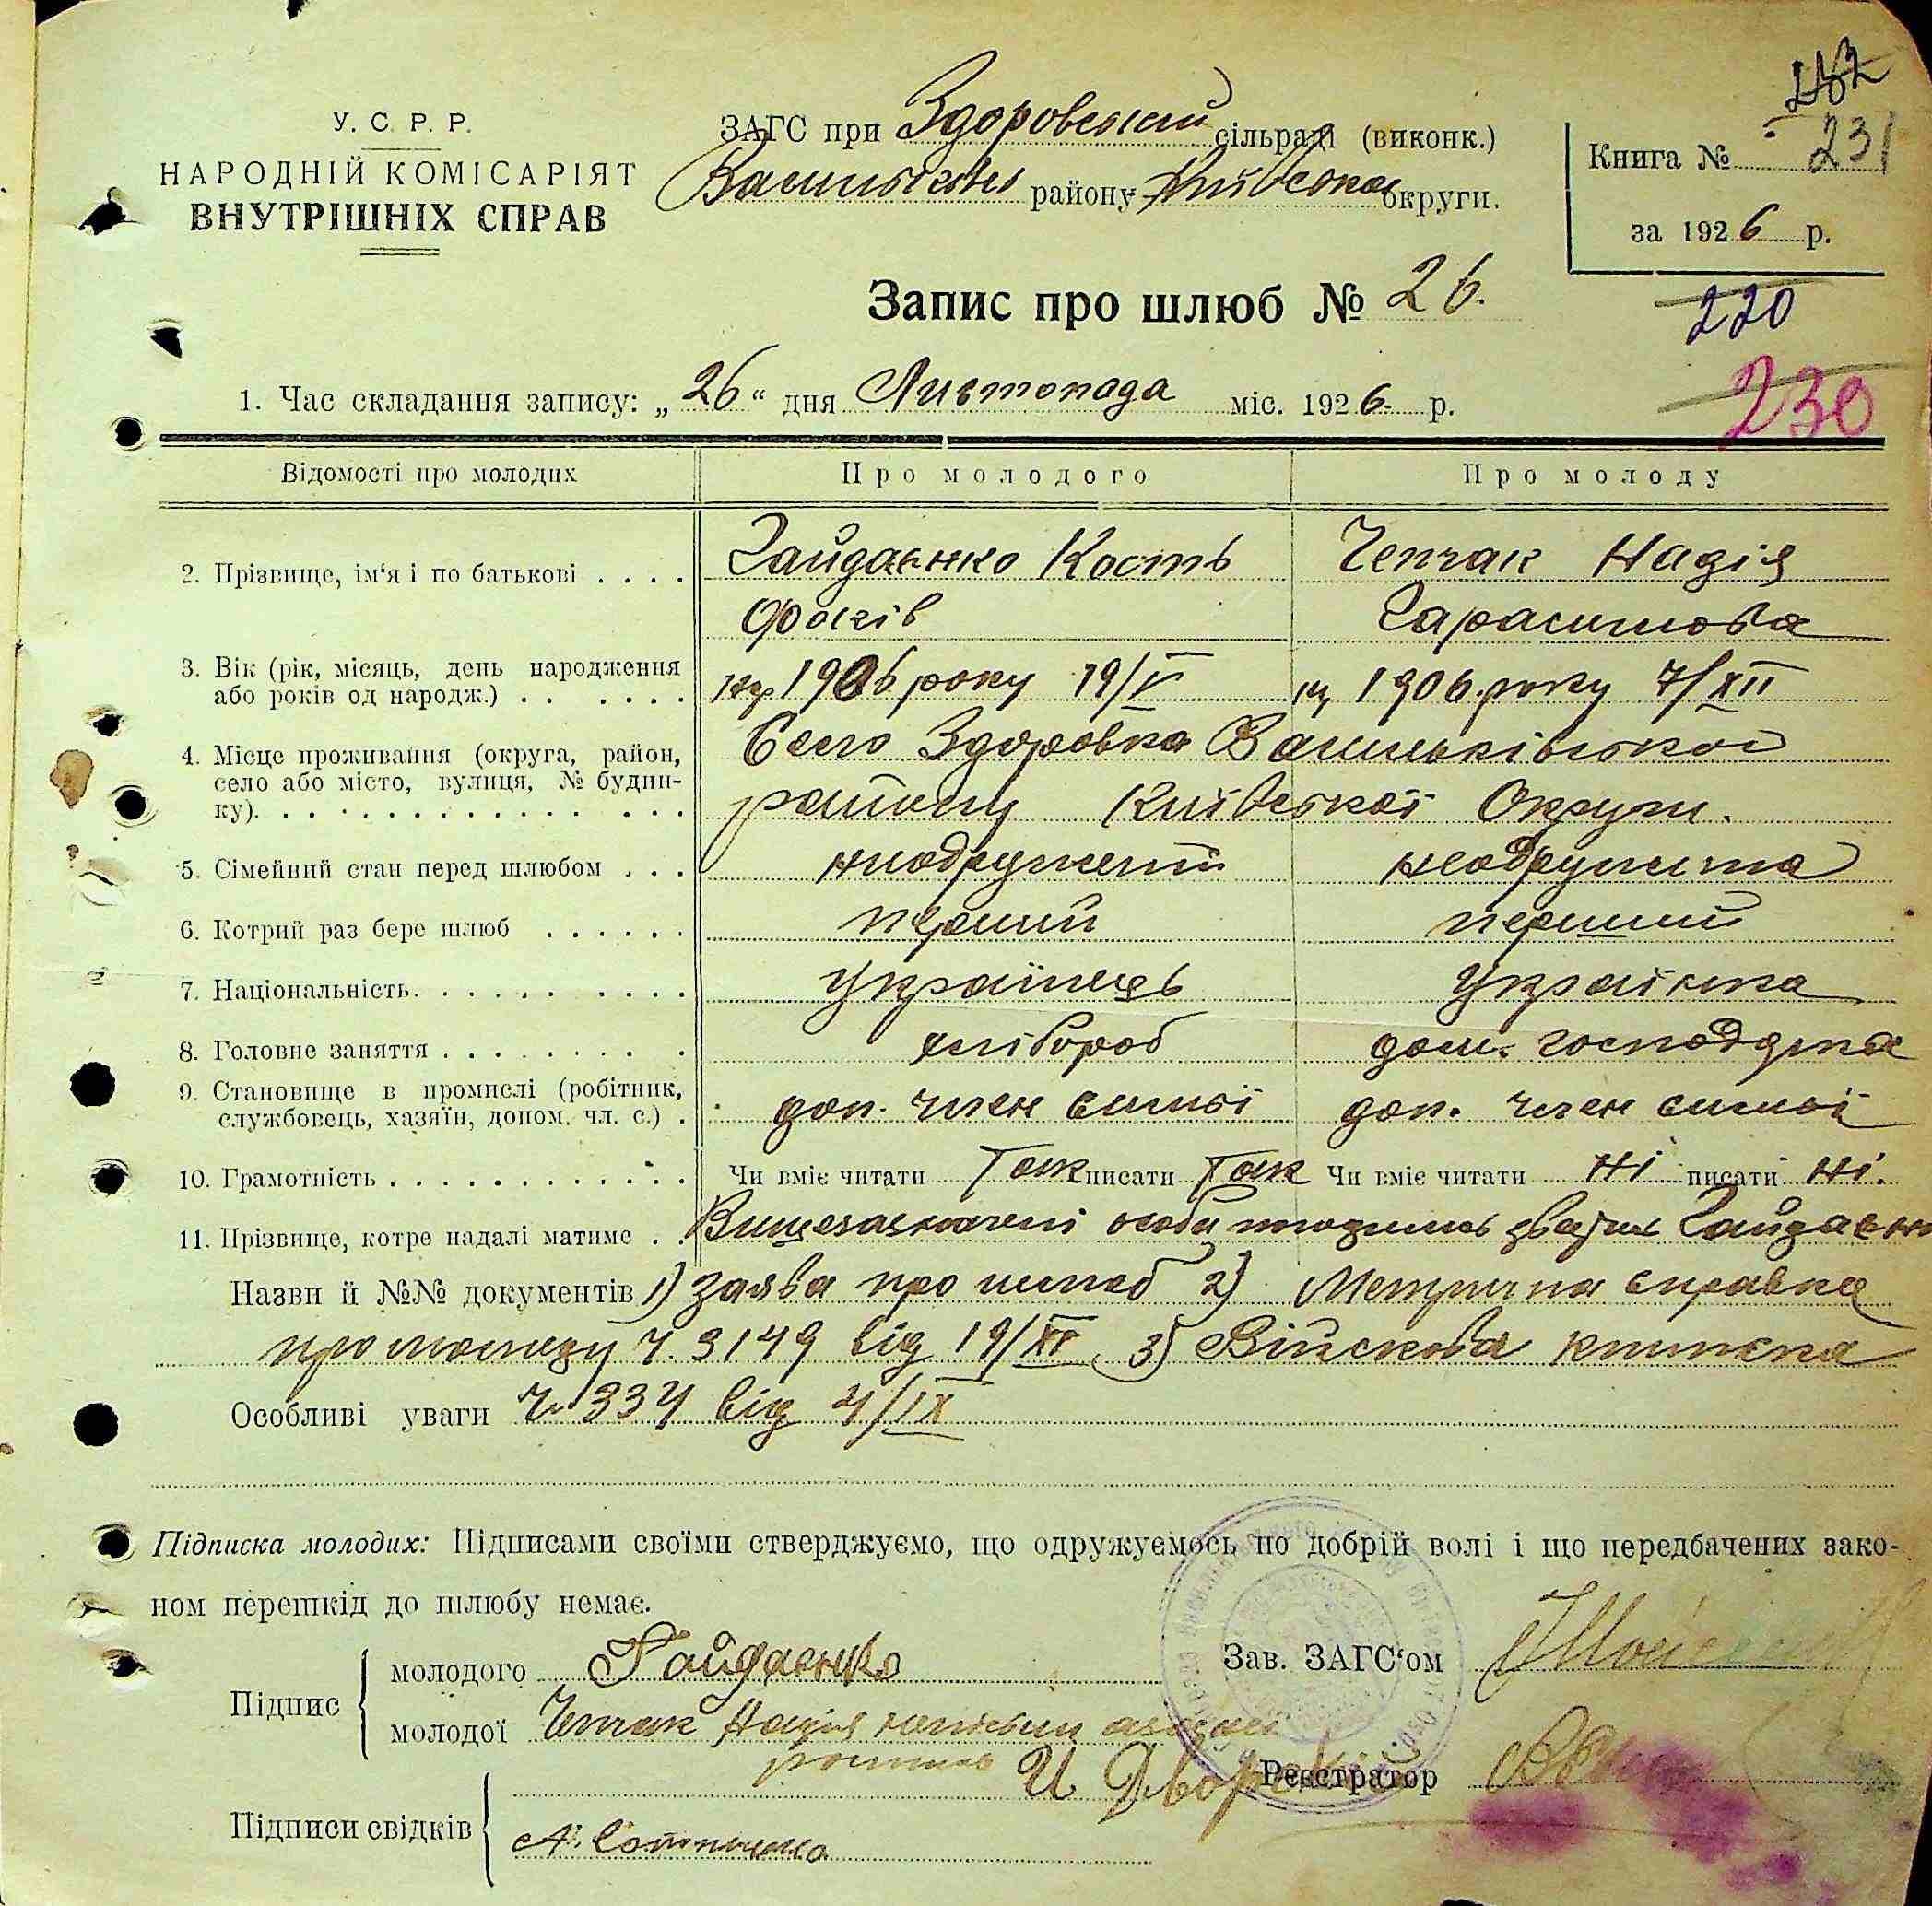 232
231
У. С. Р. Р.
НАРОДНІЙ КОМІСАРІЯТ
ВНУТРІШНІХ СПРАВ
ЗАГС при Здоровський сільраді (виконк.)
Васильків району Київської округи.
Книга №
за 1926 р.
Запис про шлюб № 26.
220
230
1. Час складання запису: „26“ дня Листопада міс. 1926 р.
Відомості про молодих Про молодого Про молоду
2. Прізвище, ім'я і по батькові Гайдаєнко Кость Чепчак Надія
Фоків Гарасимова
3. Вік (рік, місяць, день народження або років од народж.) 1906 року 19/V 1906 року 7/XII
4. Місце проживання (округа, район, село або місто, вулиця, № будинку) Село Здоровка Васильківського
району Київської Округи.
5. Сімейний стан перед шлюбом неодружений неодружена
6. Котрий раз бере шлюб перший перший
7. Національність Українець Українка
8. Головне заняття хлібороб дом. господарка
9. Становище в промислі (робітник, службовець, хазяїн, допом. чл. с.) доп. член сімьї доп. член сімьї
10. Грамотність Чи вміє читати Так писати Так Чи вміє читати Ні писати Ні.
11. Прізвище, котре надалі матиме Вищезазначені особи Гайдаєн
Назви й №№ документів 1) Заява про шлюб 2) Метрична справка
про молоду Ч. 3149 від 19/XI 3) Війскова книжка
Особливі уваги Ч. 334 від 4/IX
Підписка молодих: Підписами своїми стверджуємо, що одружуємось по добрій волі і що передбачених зако-
ном перешкід до шлюбу немає.
Підпис молодого Гайдаєнко Зав. ЗАГС'ом
молодої Чепчак Надія
И Дворе
Реєстратор
Підписи свідків